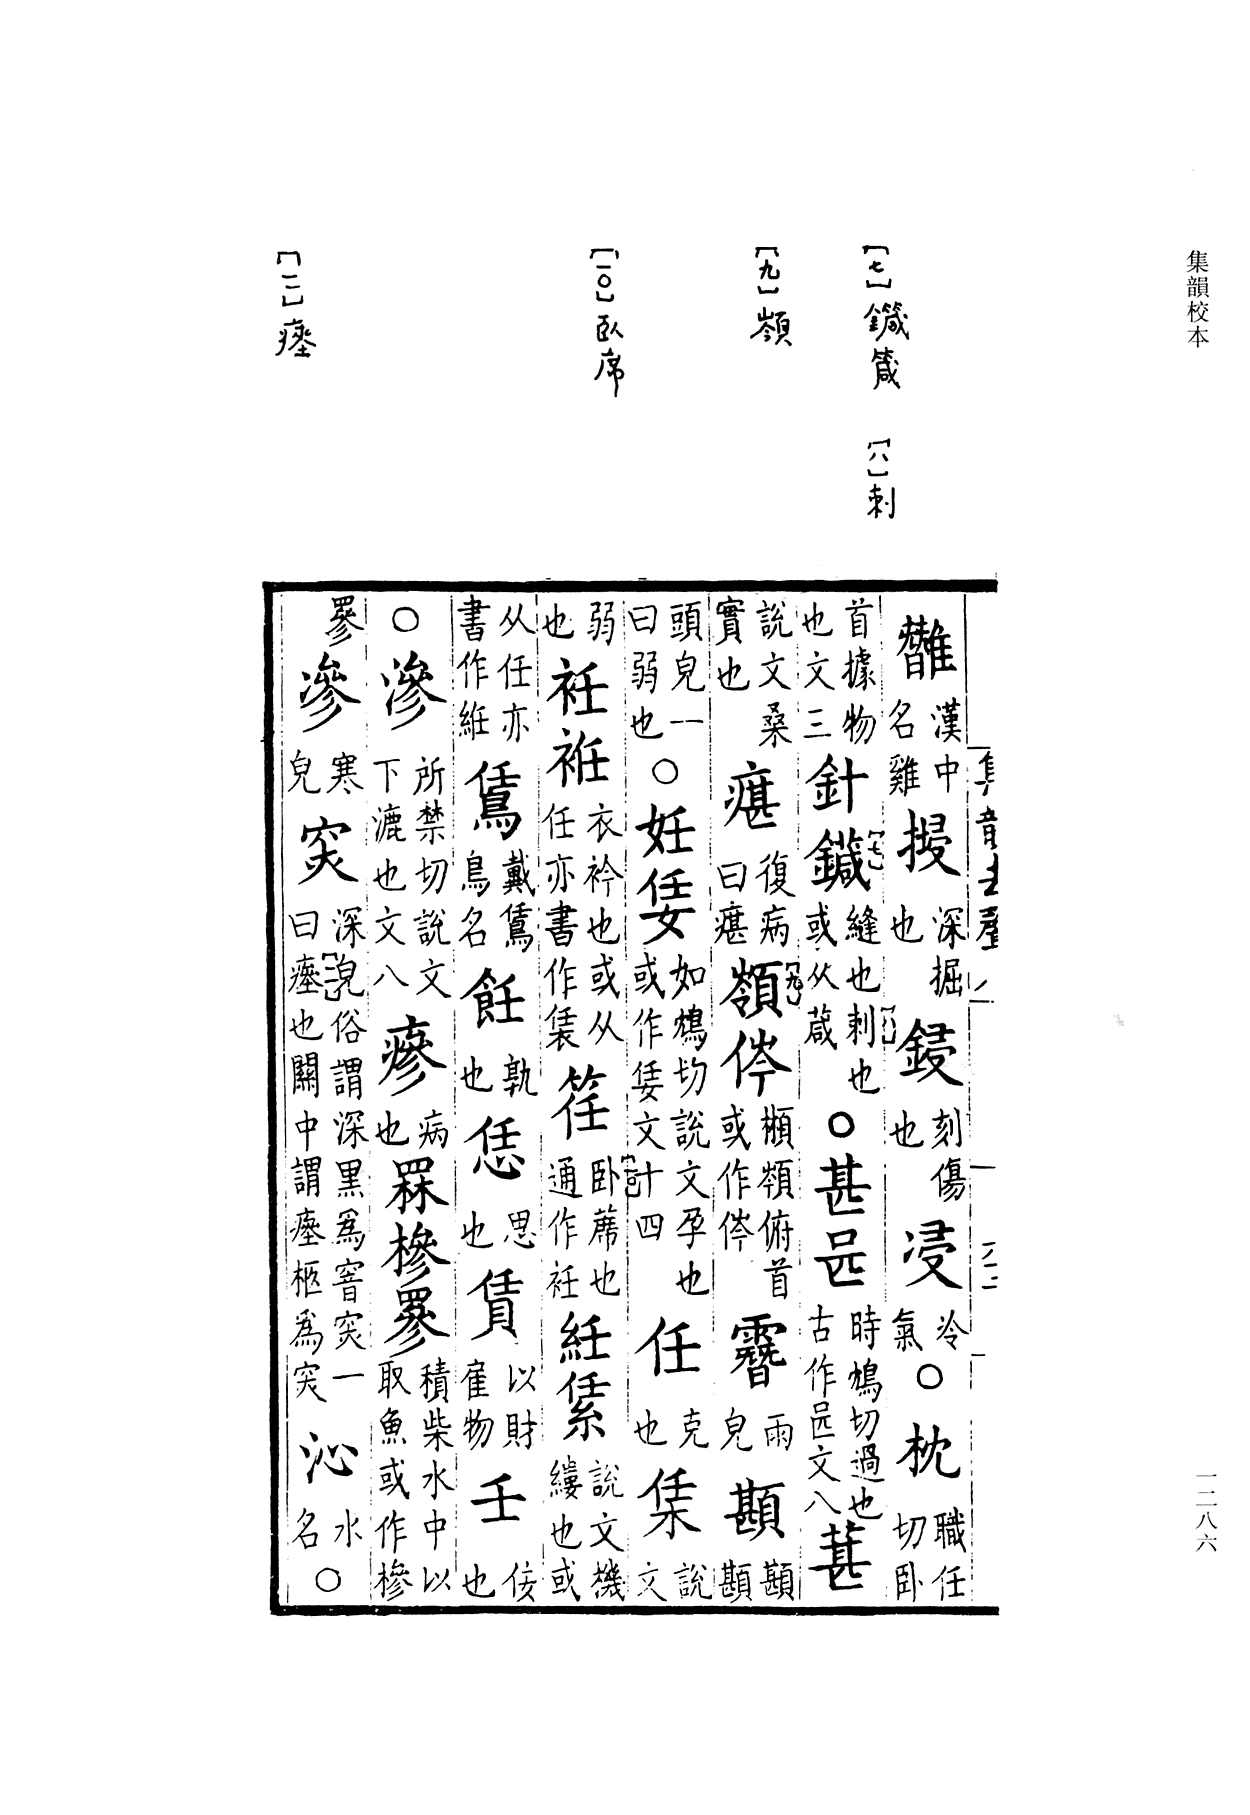 集韻校本
一二八六
[七]鍼箴 [八]刺
[九]顉
[一〇]臥席
[一一]瘞
漢中名雞 㨛深掘也 鋟刻傷也 浸冷氣 ○枕職任切卧
首據物也文三 針鍼[七]縫也刺[八]也或从葴 ○甚𠯗時鴆切過也古作𠯗文八 葚
說文桑實也 㽎復病曰㽎 [九]俯首或作 雨皃
頭皃一曰弱也 ○妊㛛如鴆切說文孕也或作㛛文十四 任克也 集說文
弱也 衽袵衣衿也或从任亦書作 筳卧蓆[一〇]也通作衽 紝說文機縷也或
从任亦書作絍 鵀戴鵀鳥名 飪孰也 恁思也 賃以財雇物 壬佞也
○滲所禁切說文下漉也文八 瘮病也 罧槮罧積柴水中以取魚或作槮
罧 寒皃 突深皃俗謂深黑爲窨突一曰瘞[一一]也關中謂瘞柩爲突 沁水名 ○